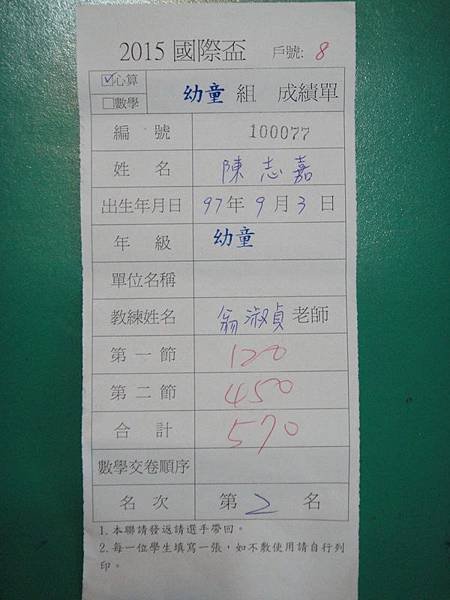 2015 國際盃 戶號: 8
☑心算
□數學
幼童 組 成績單
編號 100077
姓名 陳志嘉
出生年月日 97年9月3日
年級 幼童
單位名稱
教練姓名 翁淑貞老師
第一節 120
第二節 450
合計 570
數學交卷順序
名次 第2名
1.本聯請發返請選手帶回。
2.每一位學生填寫一張,如不敷使用請自行列
印。